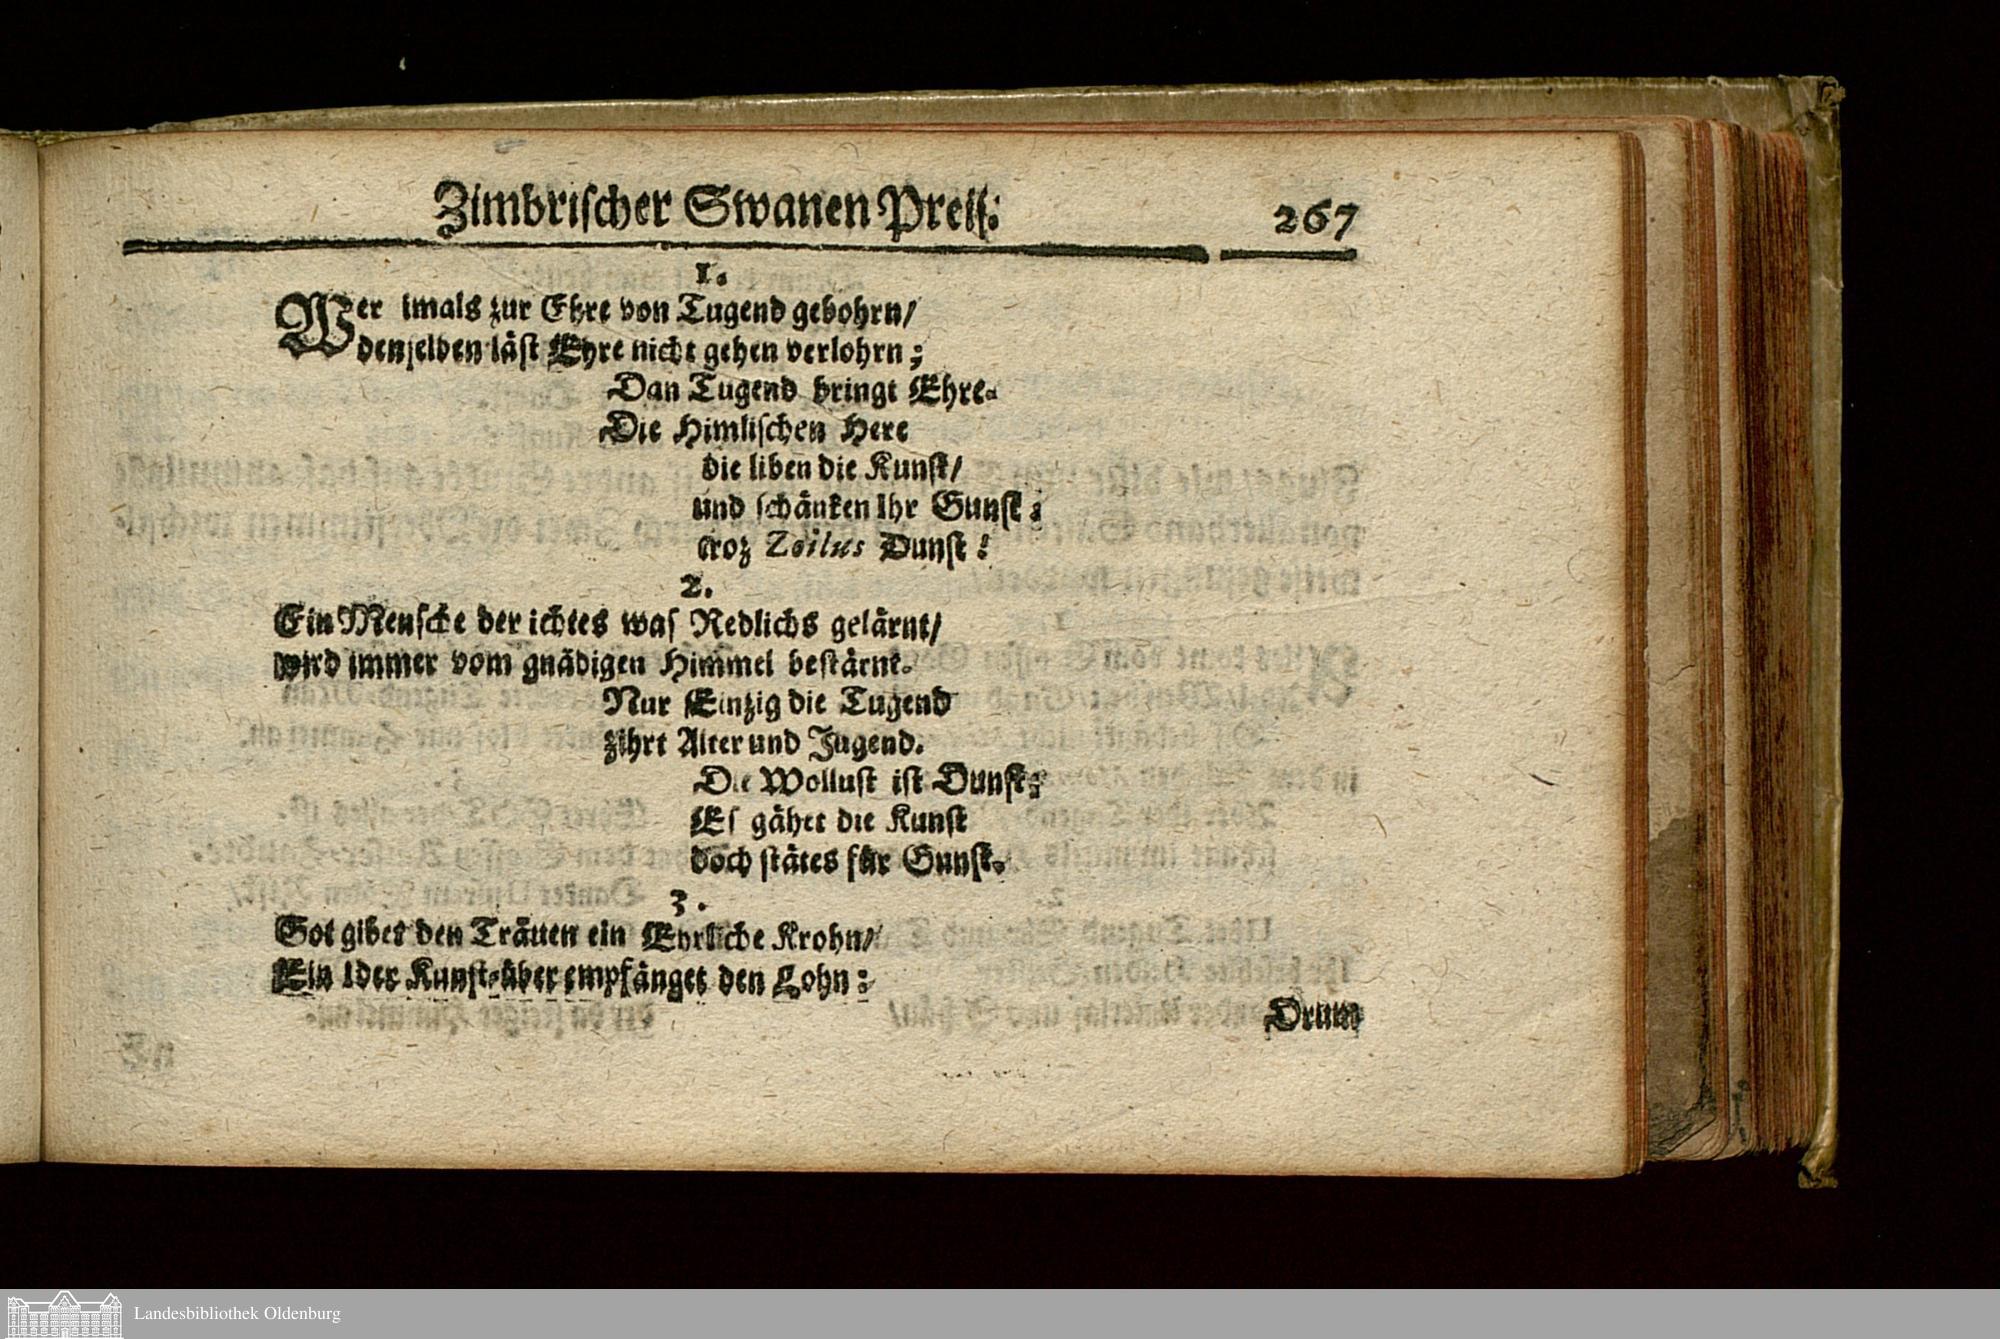 Zimbriſcher Swanen Preiſ: 267
1.
Wer imals zur Ehre von Tugend gebohrn/
denſelben läſt Ehre nicht gehen verlohrn;
Dan Tugend bringt Ehre.
Die Himliſchen Here
die liben die Kunſt/
und ſchänken Ihr Gunſt;
troz Zoilus Dunſt!
2.
Ein Menſche der ichtes waſ Redlichs gelärnt/
wird immer vom gnädigen Himmel beſtärnt.
Nur Einzig die Tugend
zihrt Alter und Jugend.
Die Wolluſt iſt Dunſt;
Eſ gähet die Kunſt
doch ſtätes für Gunſt.
3.
Got gibet den Träuen ein Ehrliche Krohn/
Ein Ider Kunſt-über empfänget den Lohn:
Drum
Landesbibliothek Oldenburg